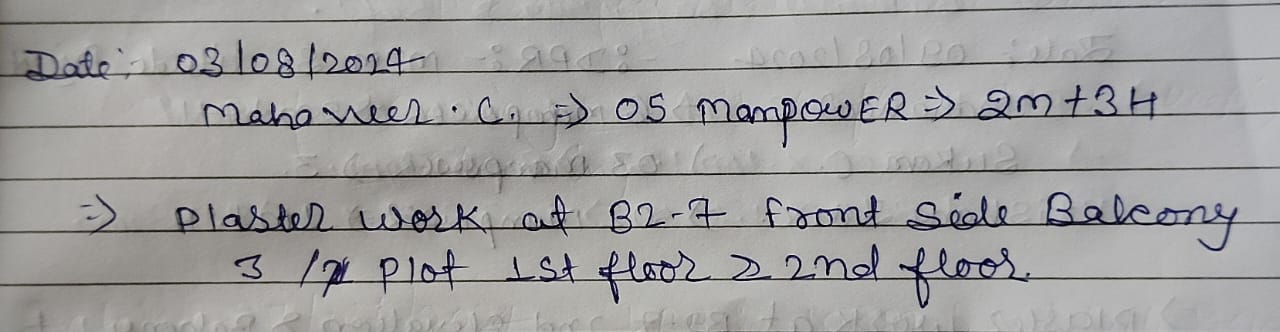 Date: 03/08/2024
Mahaveer. C. => 05 manpowER => 2m+3H
=> Plaster work at B2-7 front side Balcony
3 / Plot 1st floor & 2nd floor.